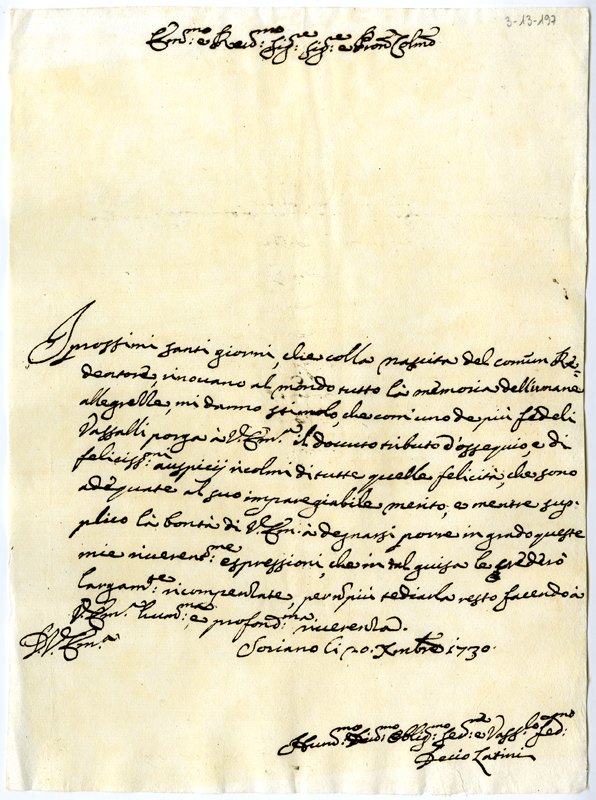 3-13-197
Em.mo e Rev.mo Sig.re Sig.re e Pron Colmo
I prossimi santi giorni, che colla nascita del comun Re=
dentore, rinovano al mondo tutto la memoria dell'umane
allegrezze, mi danno stimolo, che com'uno de più fedeli
Vassalli porga à V.Em.a il dovuto tributo d'ossequio, e di
feliciss.mi auspicij ricolmi di tutte quelle felicità, che sono
adequate al suo impareggiabile merito; e mentre sup=
plico la bontà di V.Em.a à degnarsi porre in grado queste
mie riverent.me espressioni, che in tal guisa le crederò
largam.te ricompensate, per non più tediarla resto facendo à
V.Em.a hum.ma e profond.ma riverenza.
D.V.Em.a
Soriano li 20. Xmbre 1730.
Hum.mo Dev.mo Oblig.mo Ser.re e Vass.lo Fed.mo
Decio Latini